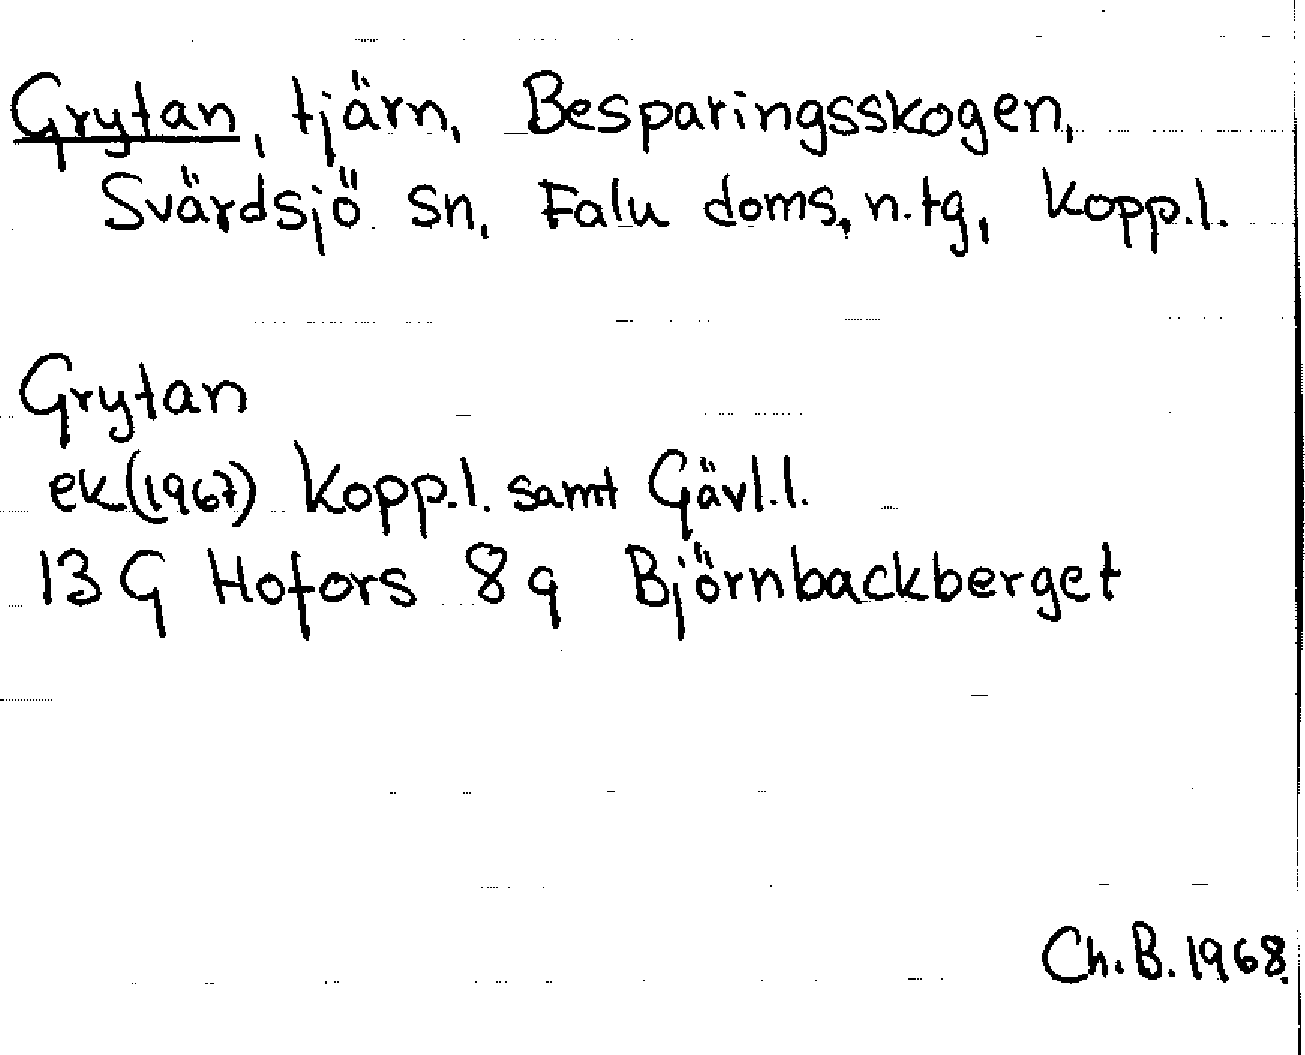 Grytan, tjärn, Besparingsskogen,
Svärdsjö sn, Falu doms, n.tg, Kopp.l.
Grytan
ek(1967) Kopp.l. samt Gävl.l.
13 G Hofors 8 q Björnbackberget
Ch.B. 1968.